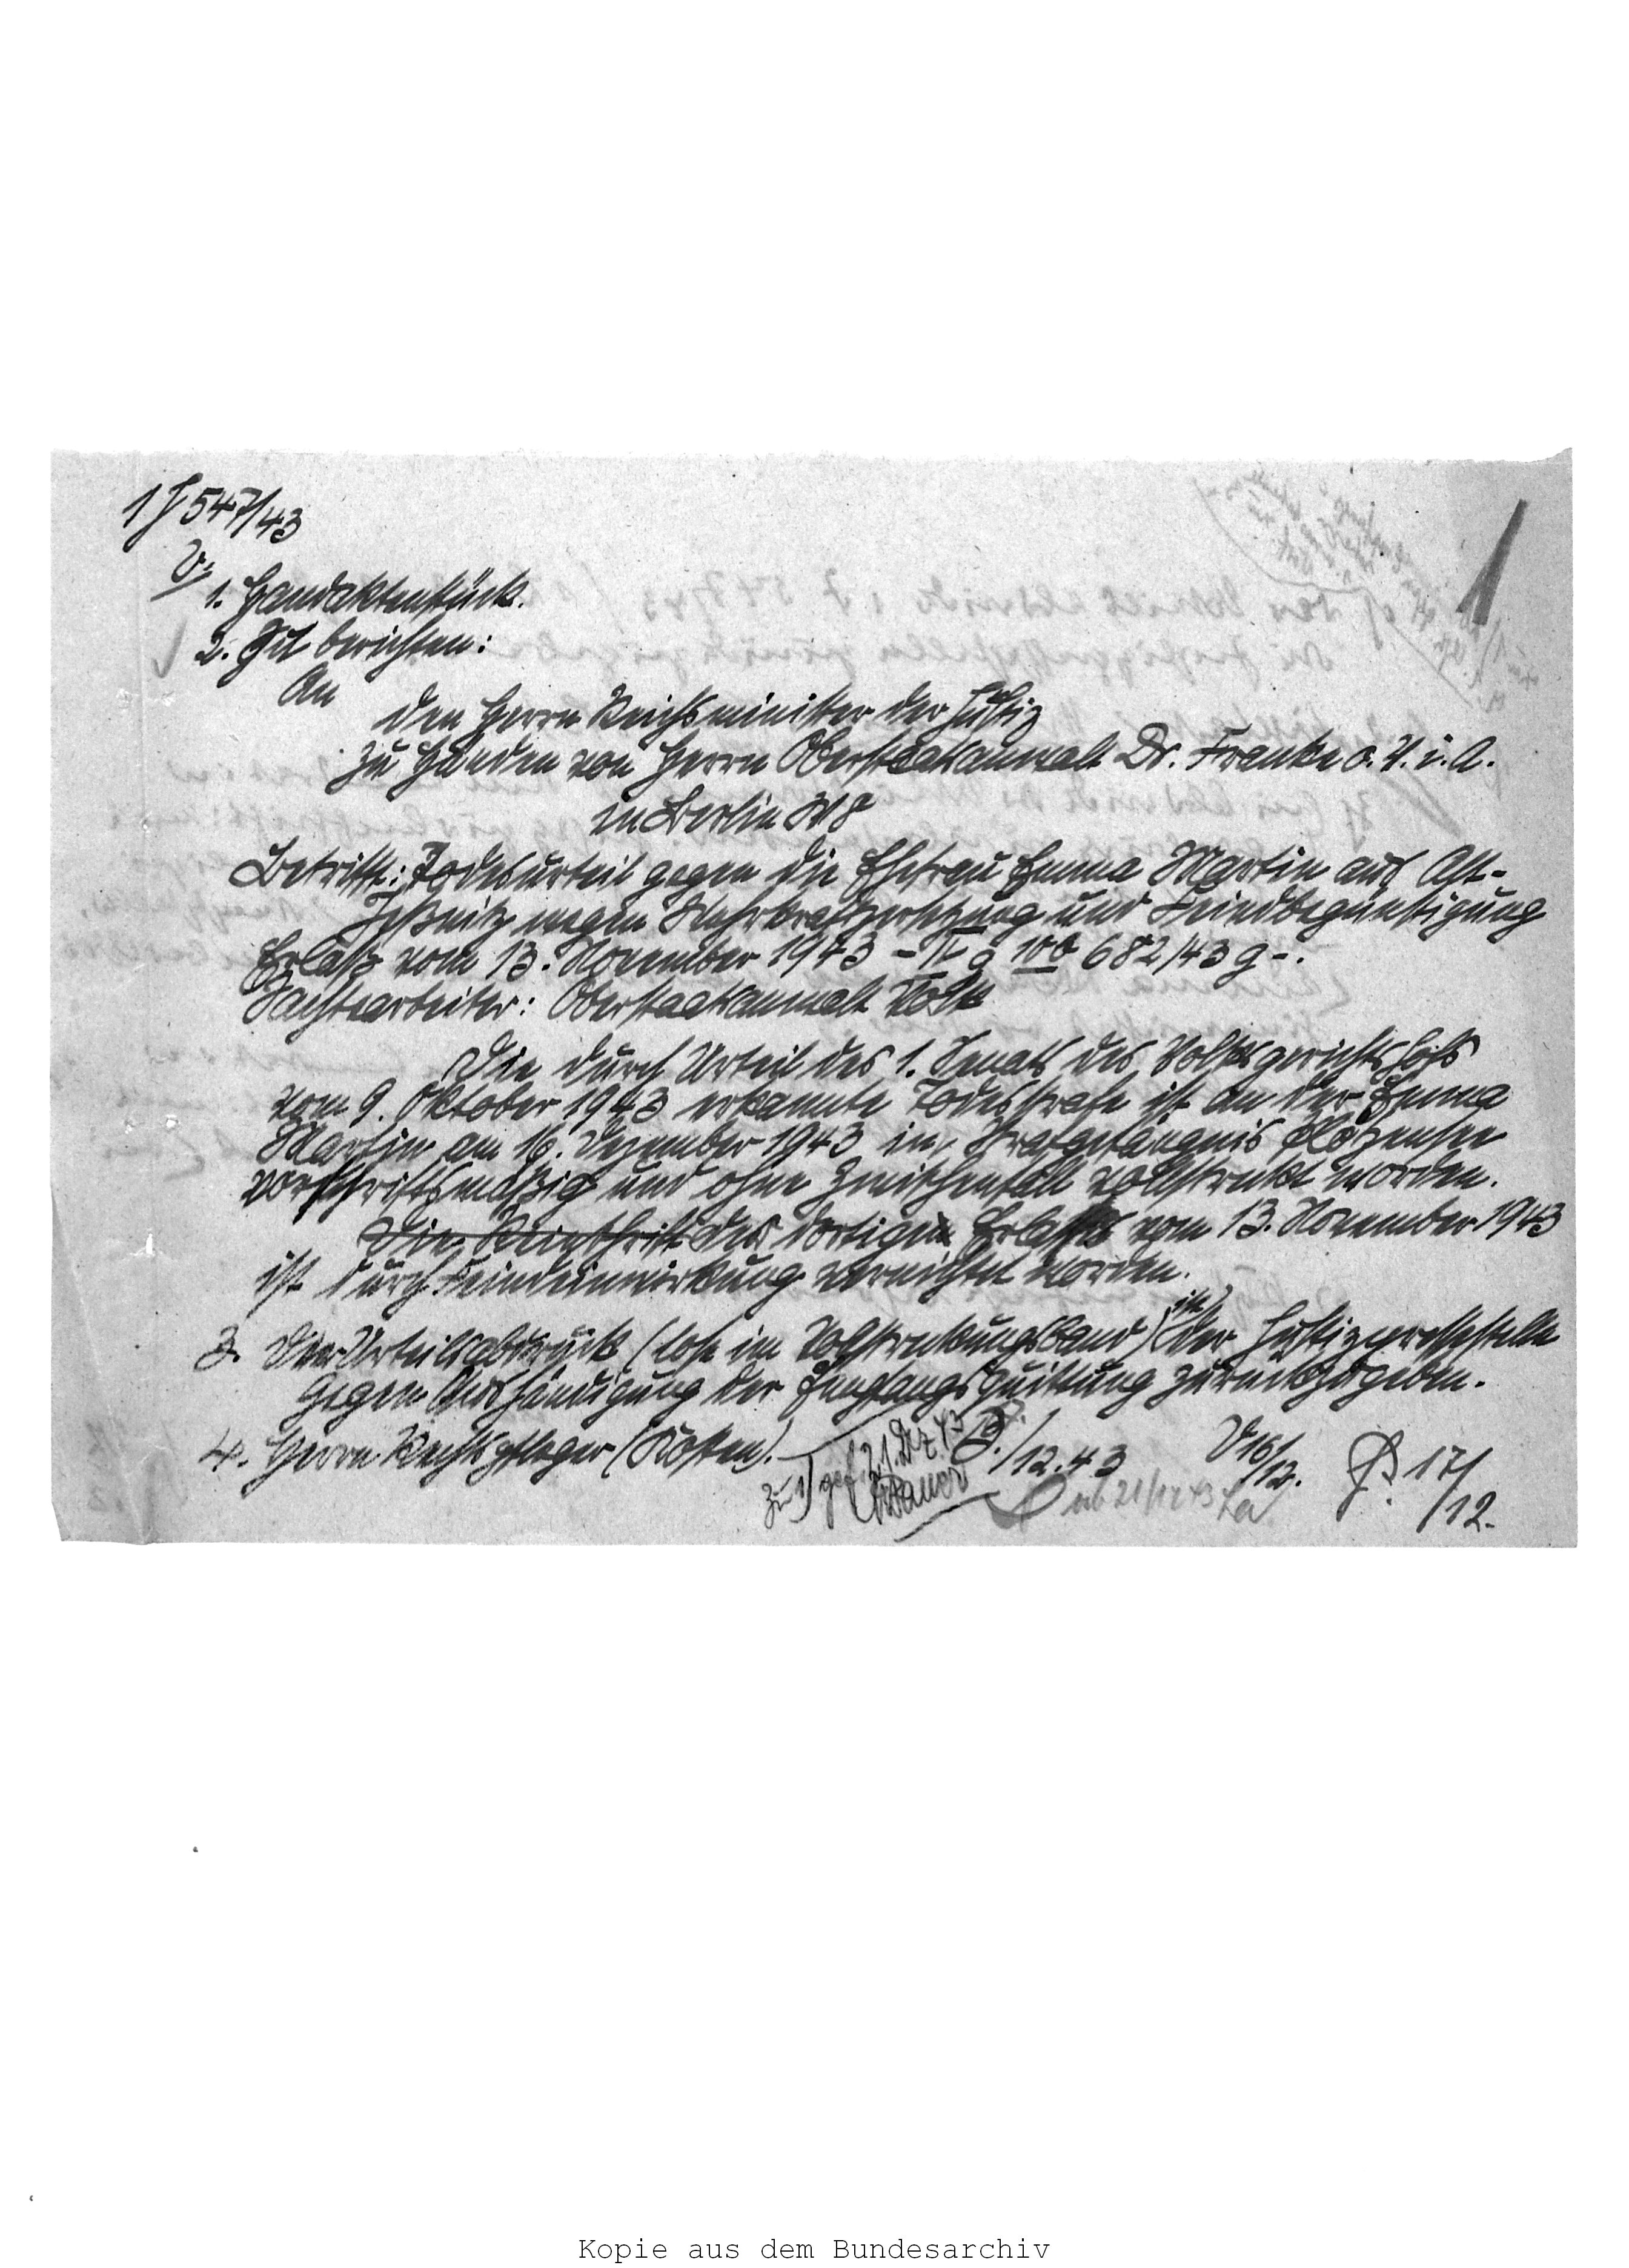 1 J 547/43
V.
1. Handaktenstück.
2. Zu berichten:
An
den Herrn Reichsminister der Justiz
zu Händen von Herrn Oberstaatsanwalt Dr. Franke o. V. i. A.
in Berlin W 8
Betrifft: Todesurteil gegen die Ehefrau Emma Martin aus Alt-
Jeßnitz wegen Wehrkraftzersetzung und Feindbegünstigung
Erlaß vom 13. November 1943 - IV g 682/43 g -.
Sachbearbeiter: Oberstaatsanwalt Volk
Die durch Urteil des 1. Senats des Volksgerichtshofs
vom 9. Oktober 1943 erkannte Todesstrafe ist an der Emma
Martin am 16. Dezember 1943 im Strafgefängnis Plötzensee
vorschriftsmäßig und ohne Zwischenfall vollstreckt worden.
Die Reinschrift des dortigen Erlasses vom 13. November 1943
ist durch Feindeinwirkung vernichtet worden.
3. Der Urteilsabdruck (lose im Vollstreckungsband) ist der Justizpressestelle
gegen Aushändigung der Empfangsquittung zurückzugeben.
4. Herrn Rechtspfleger (Kosten).
zu 1) gef. 21. Dez. 43
/12.43
V 16/12.
17/12.
ab 21/12 43
Kopie aus dem Bundesarchiv